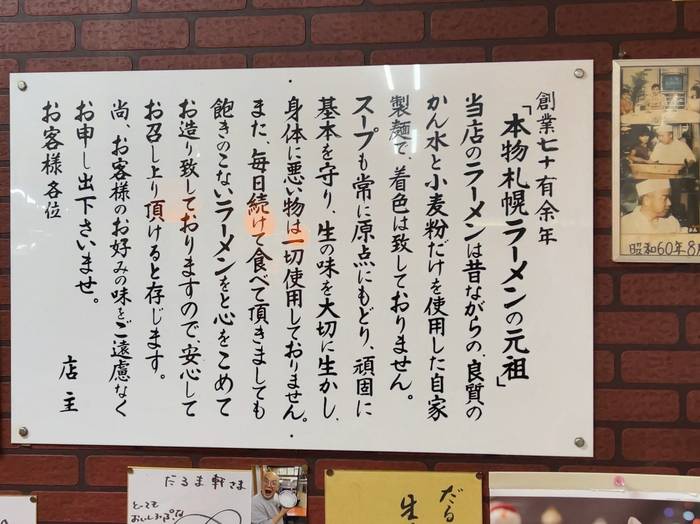 創業七十有余年
「本物札幌ラーメンの元祖」
当店のラーメンは昔ながらの、良質の
かん水と小麦粉だけを使用した自家
製麺で、着色は致しておりません。
スープも常に原点にもどり、頑固に
基本を守り、生の味を大切に生かし、
身体に悪い物は一切使用しておりません。
また、毎日続けて食べて頂きましても
飽きのこないラーメンをと心をこめて
お造り致しておりますので、安心して
お召し上り頂けると存じます。
尚、お客様のお好みの味をご遠慮なく
お申し出下さいませ。
店主
お客様各位
昭和60年8月
だるま軒さま
とっても
だる
生